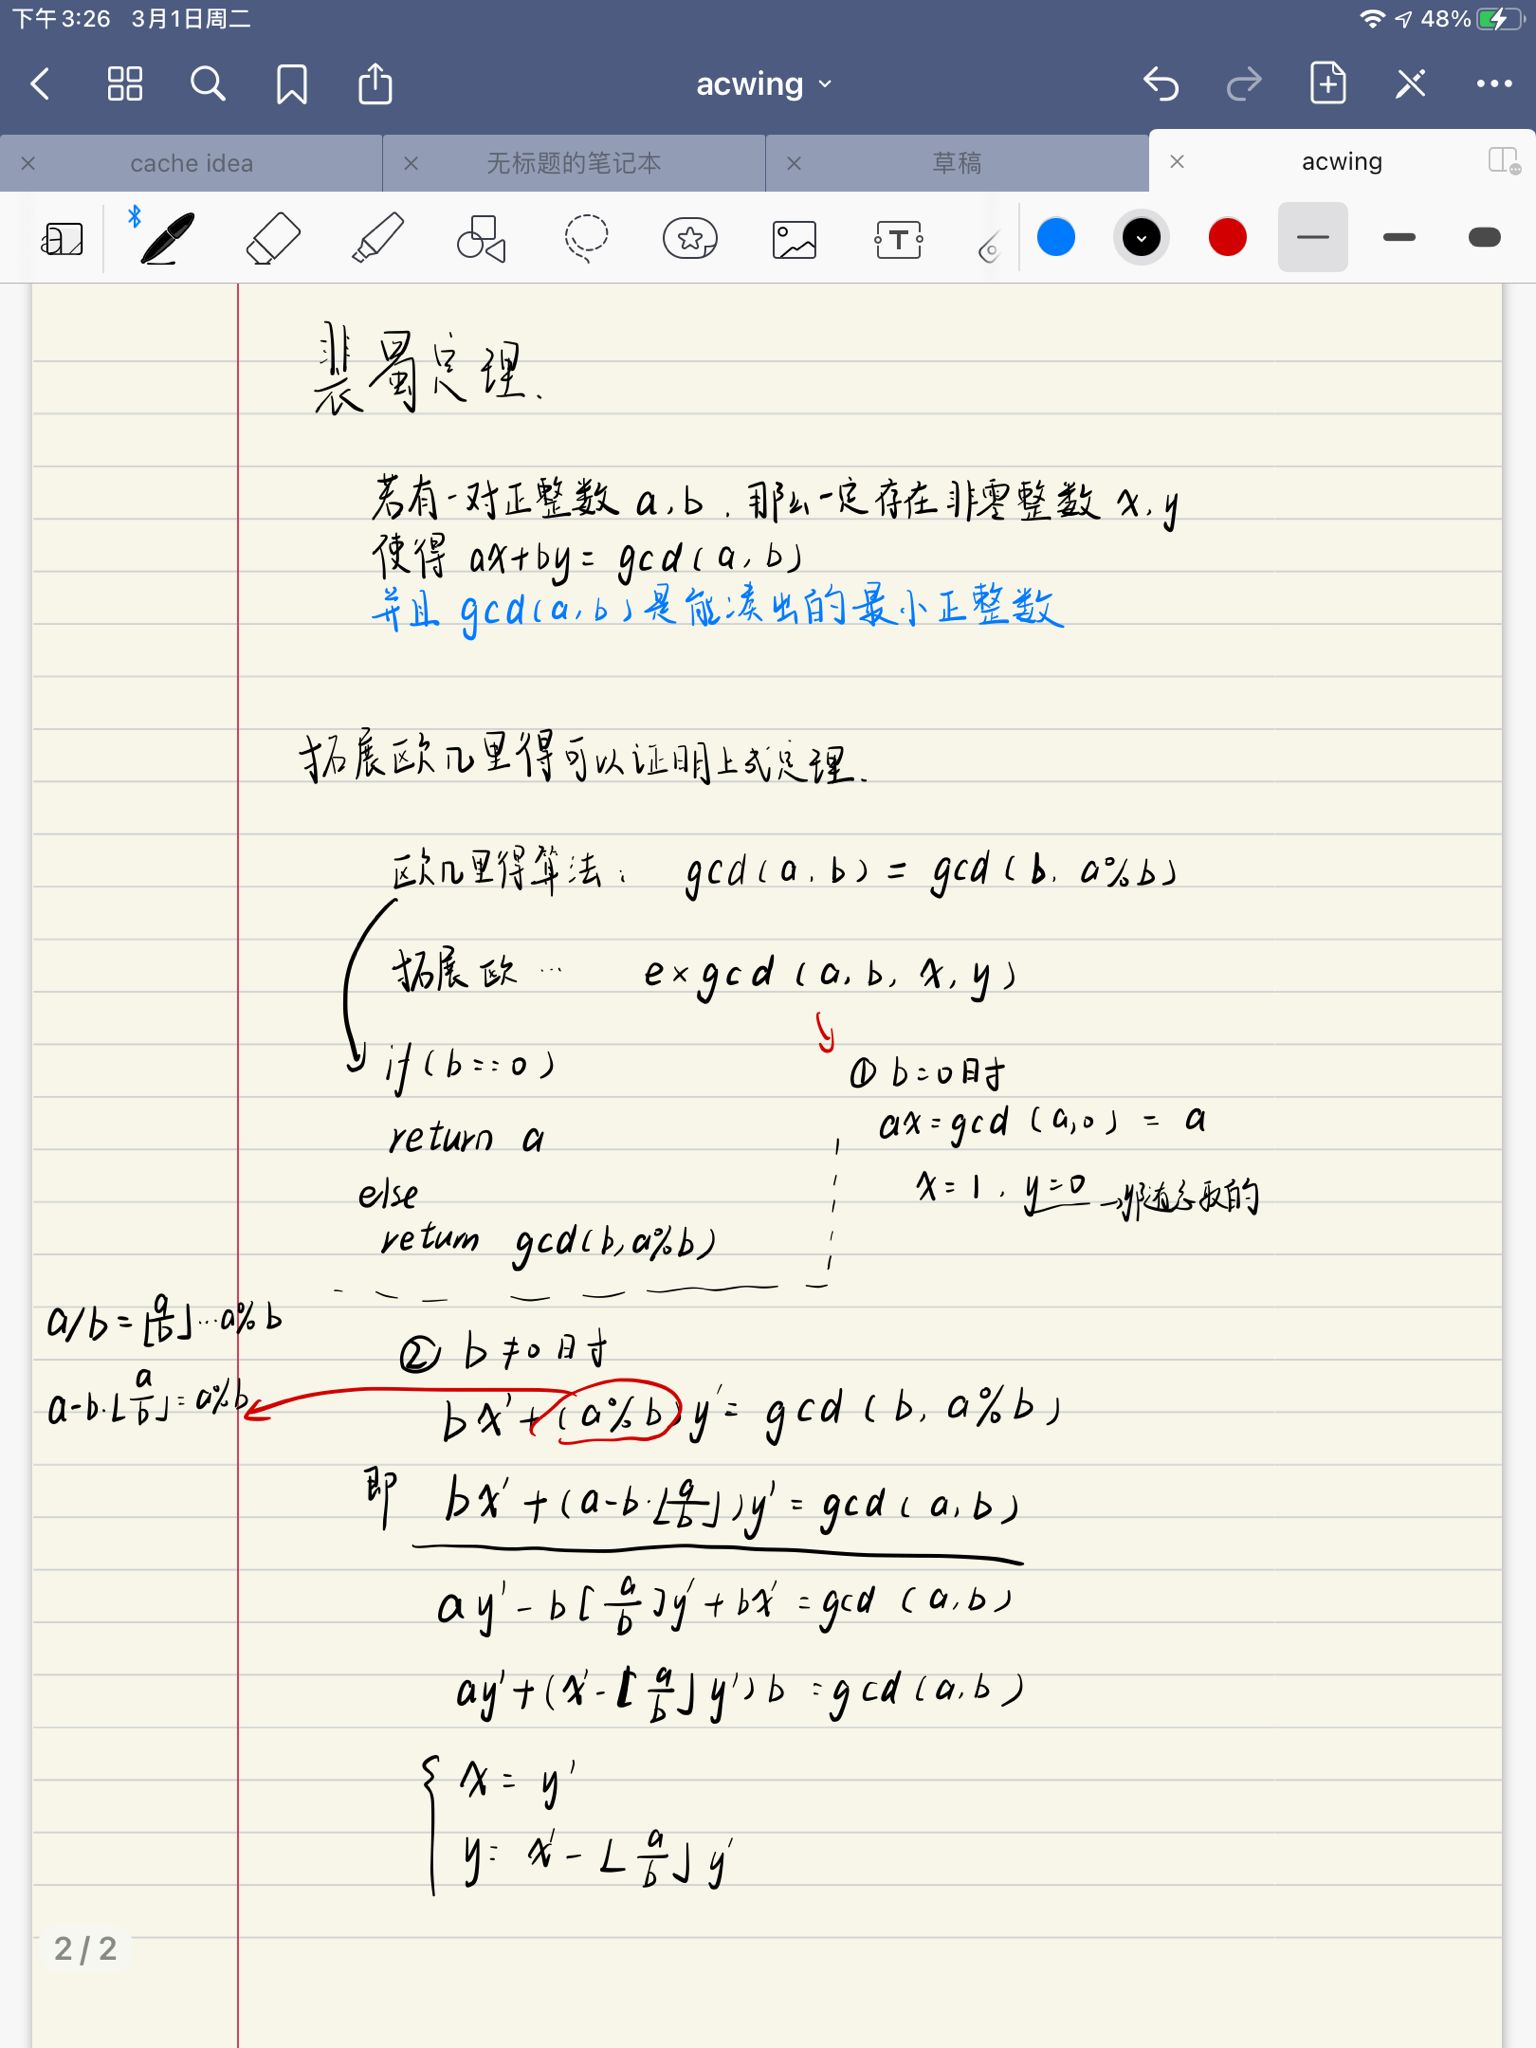 下午3:26 3月1日周二
48%
acwing
cache idea
无标题的笔记本
草稿
acwing
裴蜀定理.
若有一对正整数 a,b, 那么一定存在非零整数 x,y
使得 ax+by= gcd(a,b)
并且 gcd(a,b)是能凑出的最小正整数
拓展欧几里得可以证明上式定理.
欧几里得算法: gcd(a,b) = gcd(b, a%b)
拓展欧… exgcd (a,b, x,y)
if(b==0)
return a
else
return gcd(b,a%b)
① b=0时
ax=gcd (a,0) = a
x=1, y=0 →
a/b=⌊a/b⌋…a%b
a-b·⌊a/b⌋=a%b
② b≠0时
bx'+(a%b)y'= gcd(b, a%b)
即 bx'+(a-b·⌊a/b⌋)y'=gcd(a,b)
ay'-b[a/b]y'+bx'=gcd (a,b)
ay'+(x'-⌊a/b⌋y')b =gcd(a,b)
{ x= y'
y= x'-⌊a/b⌋y'
2 / 2